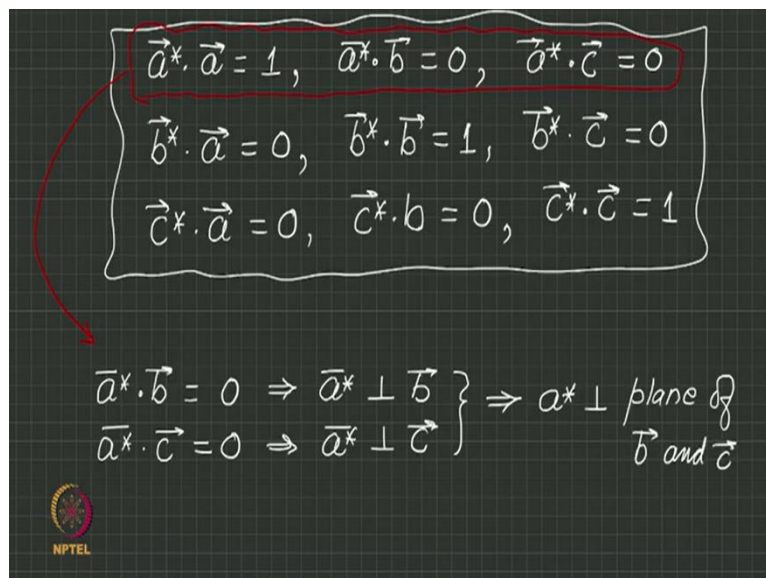 a⃗*·a⃗ = 1, a̅*·b⃗ = 0, a⃗*·c⃗ = 0
b⃗*·a⃗ = 0, b⃗*·b⃗ = 1, b⃗*·c⃗ = 0
c⃗*·a⃗ = 0, c⃗*·b = 0, c⃗*·c⃗ = 1
a̅*·b⃗ = 0 ⇒ a̅* ⊥ b⃗ } ⇒ a* ⊥ plane of
a̅*·c⃗ = 0 ⇒ a̅* ⊥ c⃗ b⃗ and c⃗
NPTEL